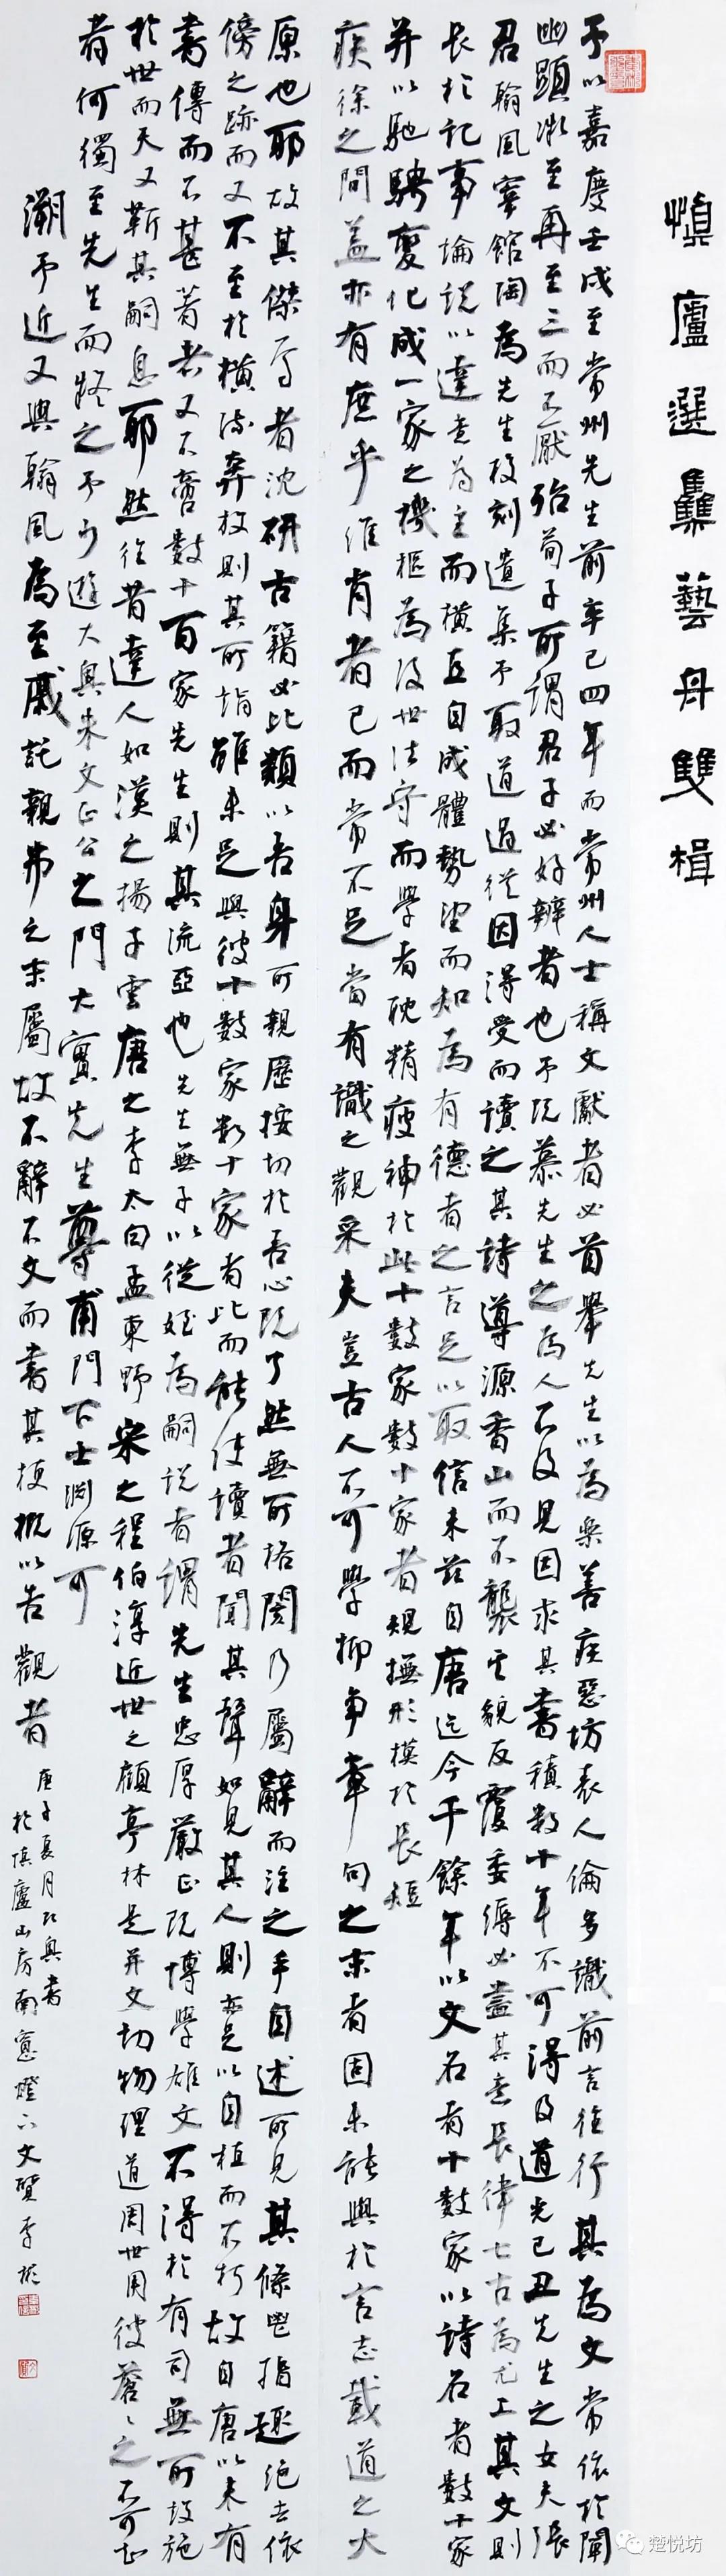 慎廬選鼂藝舟雙楫
予以嘉慶壬戌至常州先生前卒已四年而常州人士稱文獻者必首舉先生以為樂善疾惡坊表人倫多識前言往行其為文常依於闡
幽顯微至再至三而不厭殆荀子所謂君子必好辯者也予既慕先生之為人不及見因求其書積數十年不可得及道光己丑先生之女夫張
君翰風宰館陶為先生校刻遺集予取道過從因得受而讀之其詩導源香山而不襲其貌反覆委縟必盡其意長律七古為尤工其文則
長於記事論說以達意為主而橫直自成體勢望而知為有德者之言足以取信來茲自唐迄今千餘年以文名者十數家以詩名者數十家
并以馳騁變化成一家之機樞為後世法守而學者耽精疲神於此十數家數十家者規撫形模於長短
疾徐之間蓋亦有庶乎維肖者已而常不足當有識之觀采夫豈古人不可學抑爭章句之末者固未能與於言志載道之大
原也耶故其傑焉者沈研古籍必比類以吾身所親歷按切於吾心既了然無所格閡乃屬辭而注之手自述所見其條鬯指趣絕去依
傍之跡而又不至於橫流奔放則其所詣雖未足與彼十數家數十家者比而能使讀者聞其聲如見其人則亦足以自植而不朽故自唐以來有
書傳而不甚著者又不啻數十百家先生則其流亞也先生無子以從姪為嗣說者謂先生忠厚嚴正既博學雄文不得於有司無所設施
於世而天又靳其嗣息耶然往昔達人如漢之揚子雲唐之李太白孟東野宋之程伯淳近世之顧亭林是并文切物理道周世用彼蒼蒼之不可知
者何獨至先生而疑之予少遊大興朱文正公之門大實先生尊甫門下士淵源可
溯予近又與翰風為至戚託親串之末屬故不辭不文而書其梗概以告觀者
庚子夏月 興書
於慎廬山房南窗燈下文賢李
楚悦坊